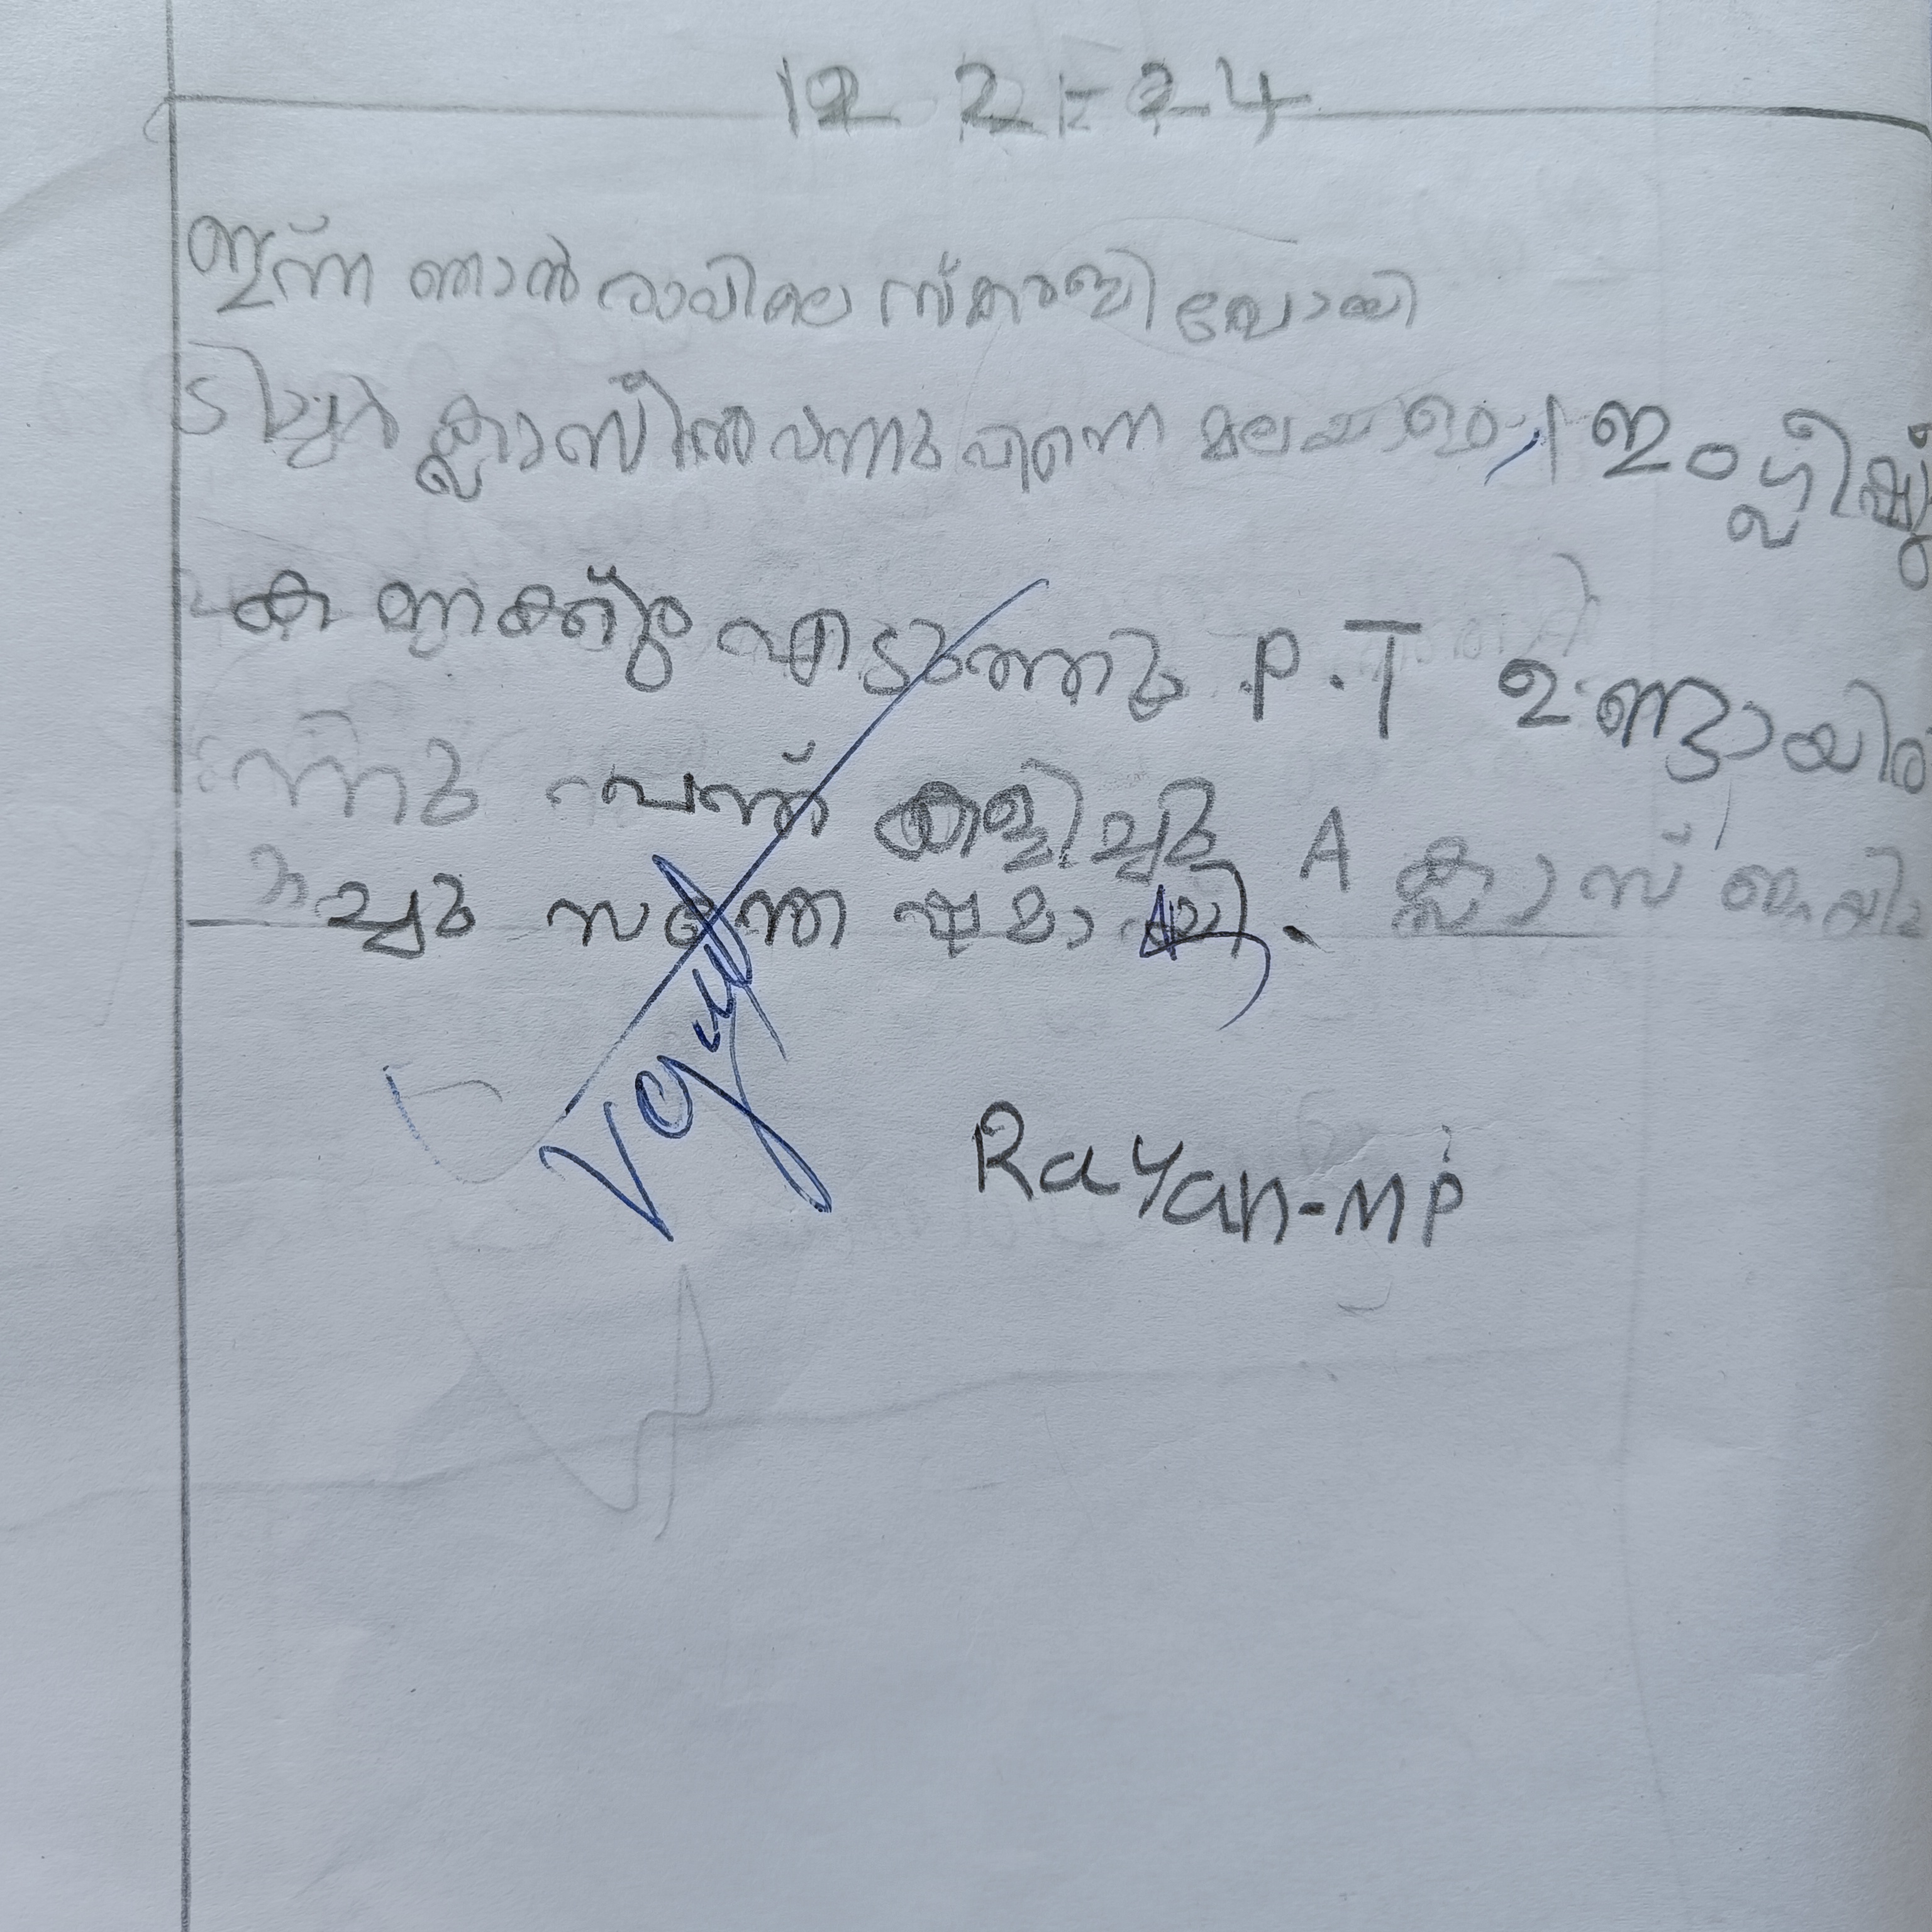 12-2-24
ഇന്ന ഞാൻ രാവിലെ പോയി
ടിച്ചർ ക്ലാസിൽ വന്നു എന്നെ മലയാളം, ഇംഗ്ലീഷും
കണക്കും എടുത്തു P.T ഉണ്ടായിരു
ന്നു പന്ത് കളിച്ചു A ക്ലാസ്
ച്ചു സന്തഷമായി.
Rayan-MP